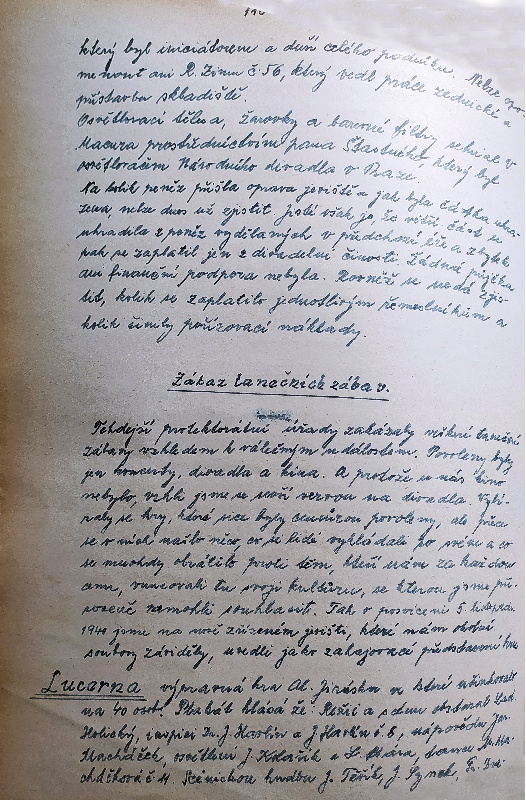 který byl iniciátorem a duší celého podniku. Nelze opo-
menout ani R. Zimu č 56, který vedl práce zednické a
přístavbu skladiště.
Osvětlovací tělesa, žárovky a barevné filtry sehnal v
Macura prostřednictvím pana Šťastného který byl
osvětlovačem Národního divadla v Praze.
Na kolik peněz přišla oprava jeviště a jak byla částka uhra-
zena, nelze dnes už zjistit. Jisté však je, že větší část se
uhradila z peněz vydělaných v předchozí éře a zbytek
pak se zaplatil jen z divadelní činosti. Žádná půjčka
ani finanční podpora nebyla. Rovněž se nedá zjis-
tit, kolik se zaplatilo jednotlivým řemeslníkům a
kolik činily pořizovací náklady.
Zákaz tanečních zábav.
Tehdejší protektorátní úřady zakázaly veškeré taneční
zábavy vzhledem k válečným událostem. Povoleny byly
jen koncerty, divadla a kina. A protože u nás kino
nebylo, vrhli jsme se s vervou na divadla. Vybí-
raly se hry, které sice byly cenzurou povoleny, ale přece
se v nich našlo něco co si lidé vykládali po svém a co
se mnohdy obrátilo proti těm, kteří nám za každou
cenu, vnucovali tu svoji kulturu, se kterou jsme při-
rozeně nemohli souhlasit. Tak o posvícení 5. listopadu
1940 jsme na nově zřízeném jevišti, které nám okolní
soubory záviděly, uvedli jako zahajovací představení hru
Lucerna výpravná hra Al. Jiráska ve které účinkovalo
na 40 osob. Plakát hlásá že: Režii a scénu obstaral Lad.
Holický, inspicí Fr. J. Havlin a J. Havlin č. 8, nápovědu Jar.
Macháček, osvětlení J. Kolařík a L. Mára,
č 4. Scénickou hudbu J. Teřik, J. Synek, Fr.